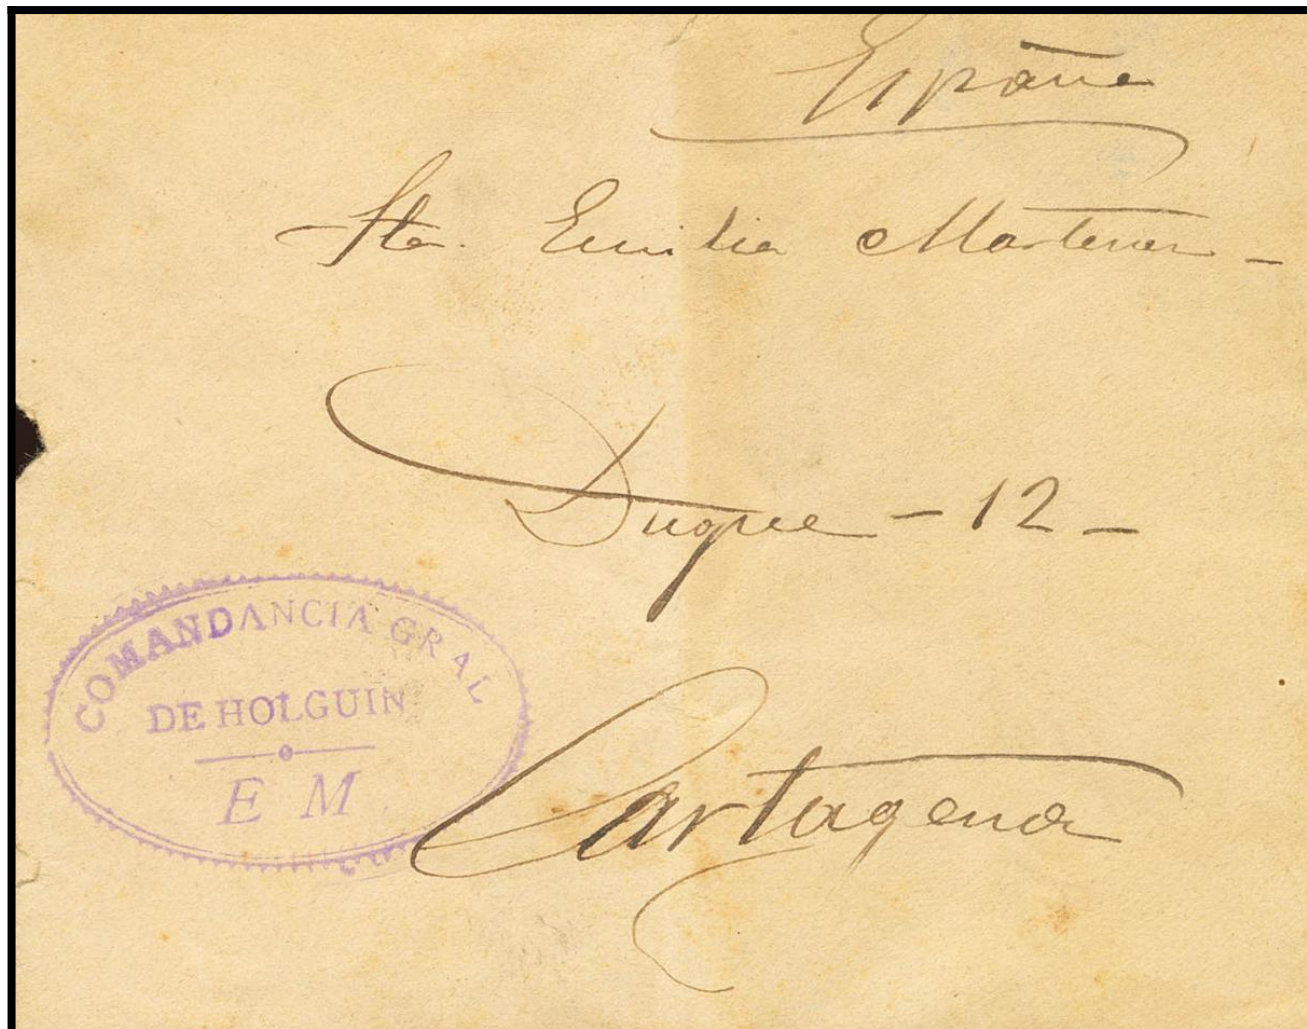 España
Sta. Emilia Martinez -
Duque - 12 -
COMANDANCIA GRAL
DE HOLGUIN
E M
Cartagena